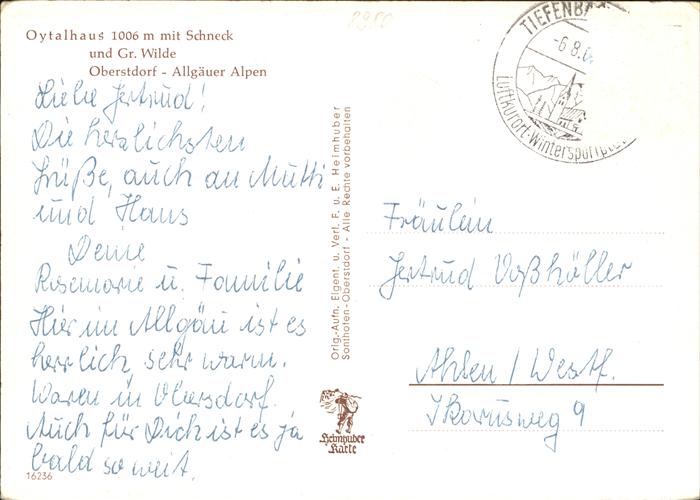 Oytalhaus 1006 m mit Schneck
und Gr. Wilde
Oberstdorf - Allgäuer Alpen
Liebe Gertrud!
Die herzlichsten
Grüße, auch an Mutti
und Hans
Deine
Rosemarie u. Familie
Hier im Allgäu ist es
herrlich, sehr warm.
Waren in Obersdorf.
Auch für Dich ist es ja
bald so weit.
16236
Orig.-Aufn. Eigent. u. Verl. F. u. E. Heimhuber
Sonthofen-Oberstdorf - Alle Rechte vorbehalten
Heimhuber
Karte
TIEFENB
-6.8.6
Luftkurort-Wintersportpla
Fräulein
Gertrud Voßhöller
Ahlen / Westf.
Ikarusweg 9